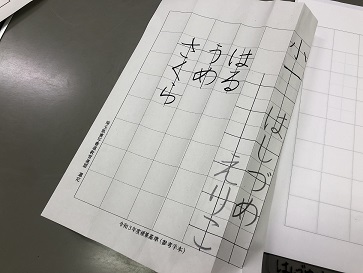 小一 はしづめ えりこ
はる
うめ
さくら
令和3年度硬筆基準(参考手本)